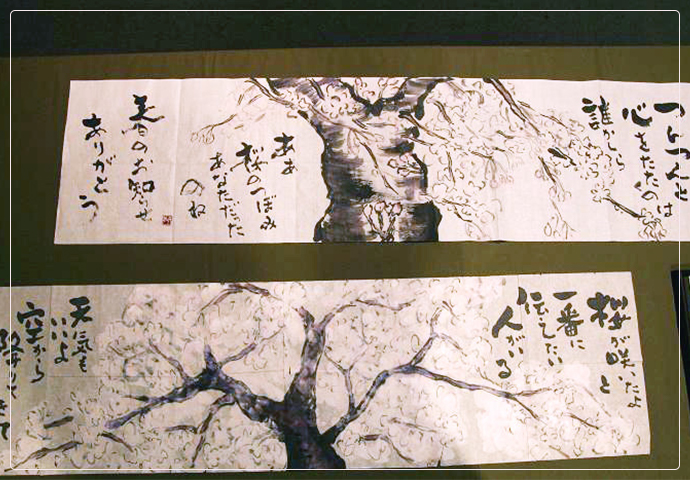 つんつんと
心をたたくのは
誰かしら
ああ
桜のつぼみ
あなただった
のね
春のお知らせ
ありがとう
桜が咲いたよ
と
一番に
伝えたい
人がいる
天気も
いいよ
空から
降りてきて